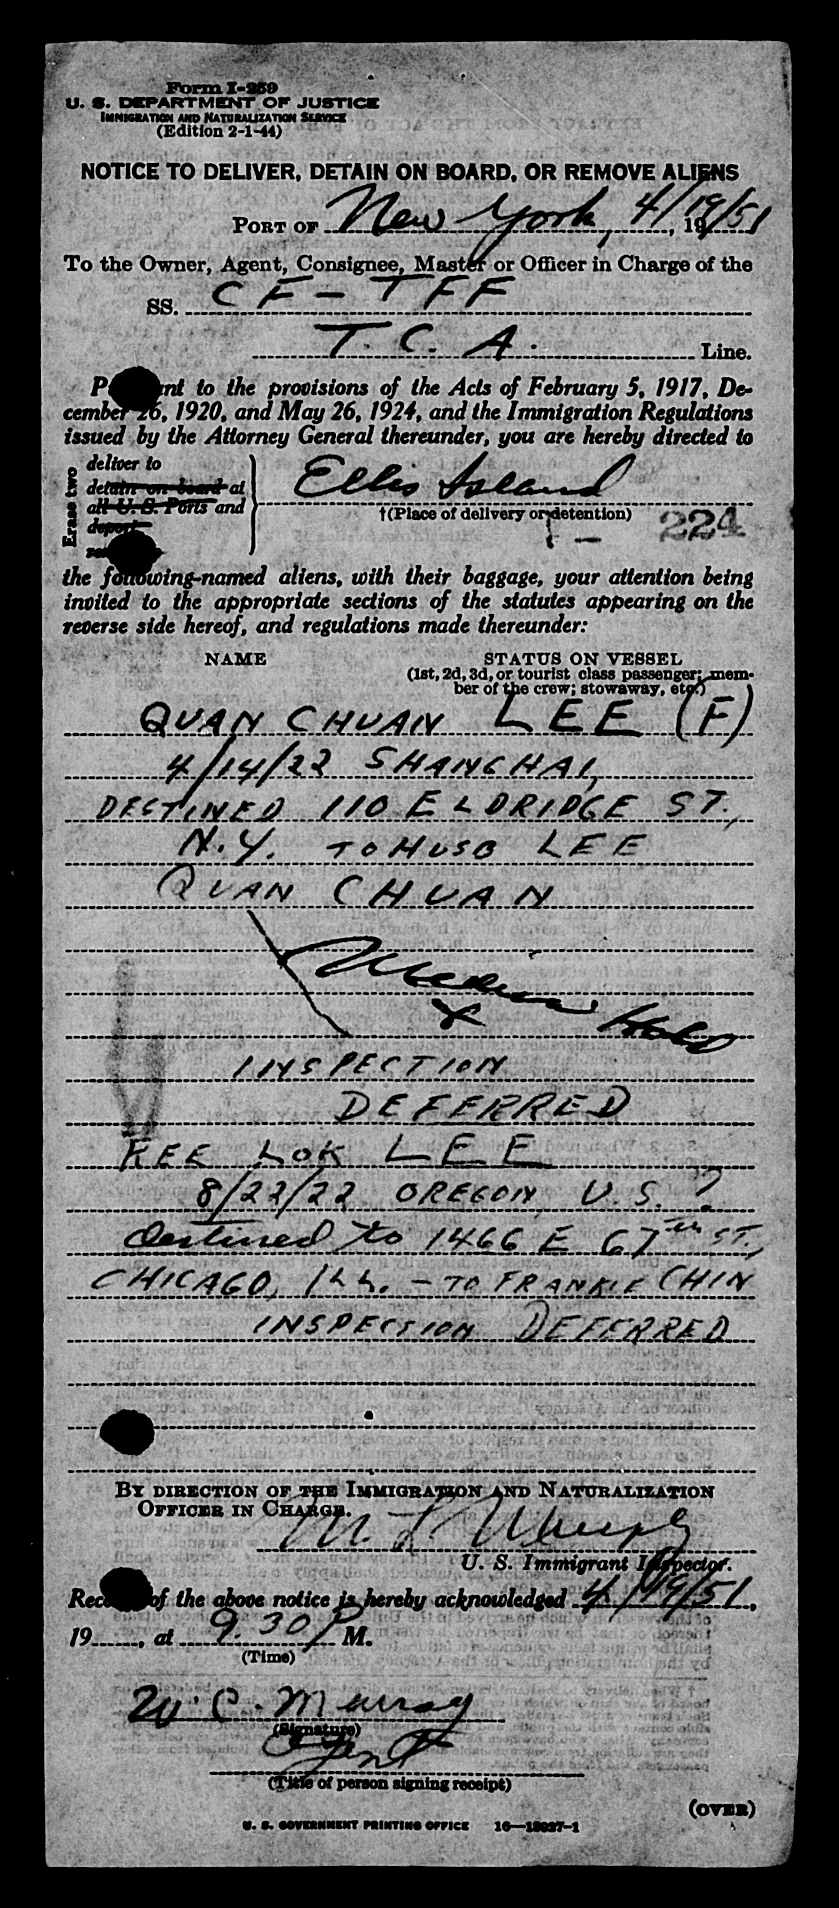 Form I-259
U. S. DEPARTMENT OF JUSTICE
IMMIGRATION AND NATURALIZATION SERVICE
(Edition 2-1-44)
NOTICE TO DELIVER, DETAIN ON BOARD, OR REMOVE ALIENS
PORT OF New York, 4/19/51, 19
To the Owner, Agent, Consignee, Master or Officer in Charge of the
SS. CF-TFF
T. C. A. Line.
P nt to the provisions of the Acts of February 5, 1917, De-
cember 26, 1920, and May 26, 1924, and the Immigration Regulations
issued by the Attorney General thereunder, you are hereby directed to
Erase two
deliver to
detain on board at
all U. S. Ports and
deport
Ellis Island
†(Place of delivery or detention)
224
the following-named aliens, with their baggage, your attention being
invited to the appropriate sections of the statutes appearing on the
reverse side hereof, and regulations made thereunder:
NAME STATUS ON VESSEL
(1st, 2d, 3d, or tourist class passenger; mem-
ber of the crew; stowaway, etc.)
QUAN CHUAN LEE (F)
4/14/22 SHANGHAI,
DESTINED 110 ELDRIDGE ST.,
N.Y. TO HUSB LEE
QUAN CHUAN
Medical Hold
INSPECTION
DEFERRED
KEE LOK LEE
8/22/22 OREGON, U.S. ?
destined to 1466 E 67TH ST.,
CHICAGO, ILL. - TO FRANKIE CHIN
INSPECTION DEFERRED
BY DIRECTION OF THE IMMIGRATION AND NATURALIZATION
OFFICER IN CHARGE.
M. L. Murphy
U. S. Immigrant Inspector.
Rec of the above notice is hereby acknowledged 4/19/51,
19, at 9.30 P M.
(Time)
W. C. Murray
(Signature)
Agent
(Title of person signing receipt)
(OVER)
U. S. GOVERNMENT PRINTING OFFICE 16—13927-1